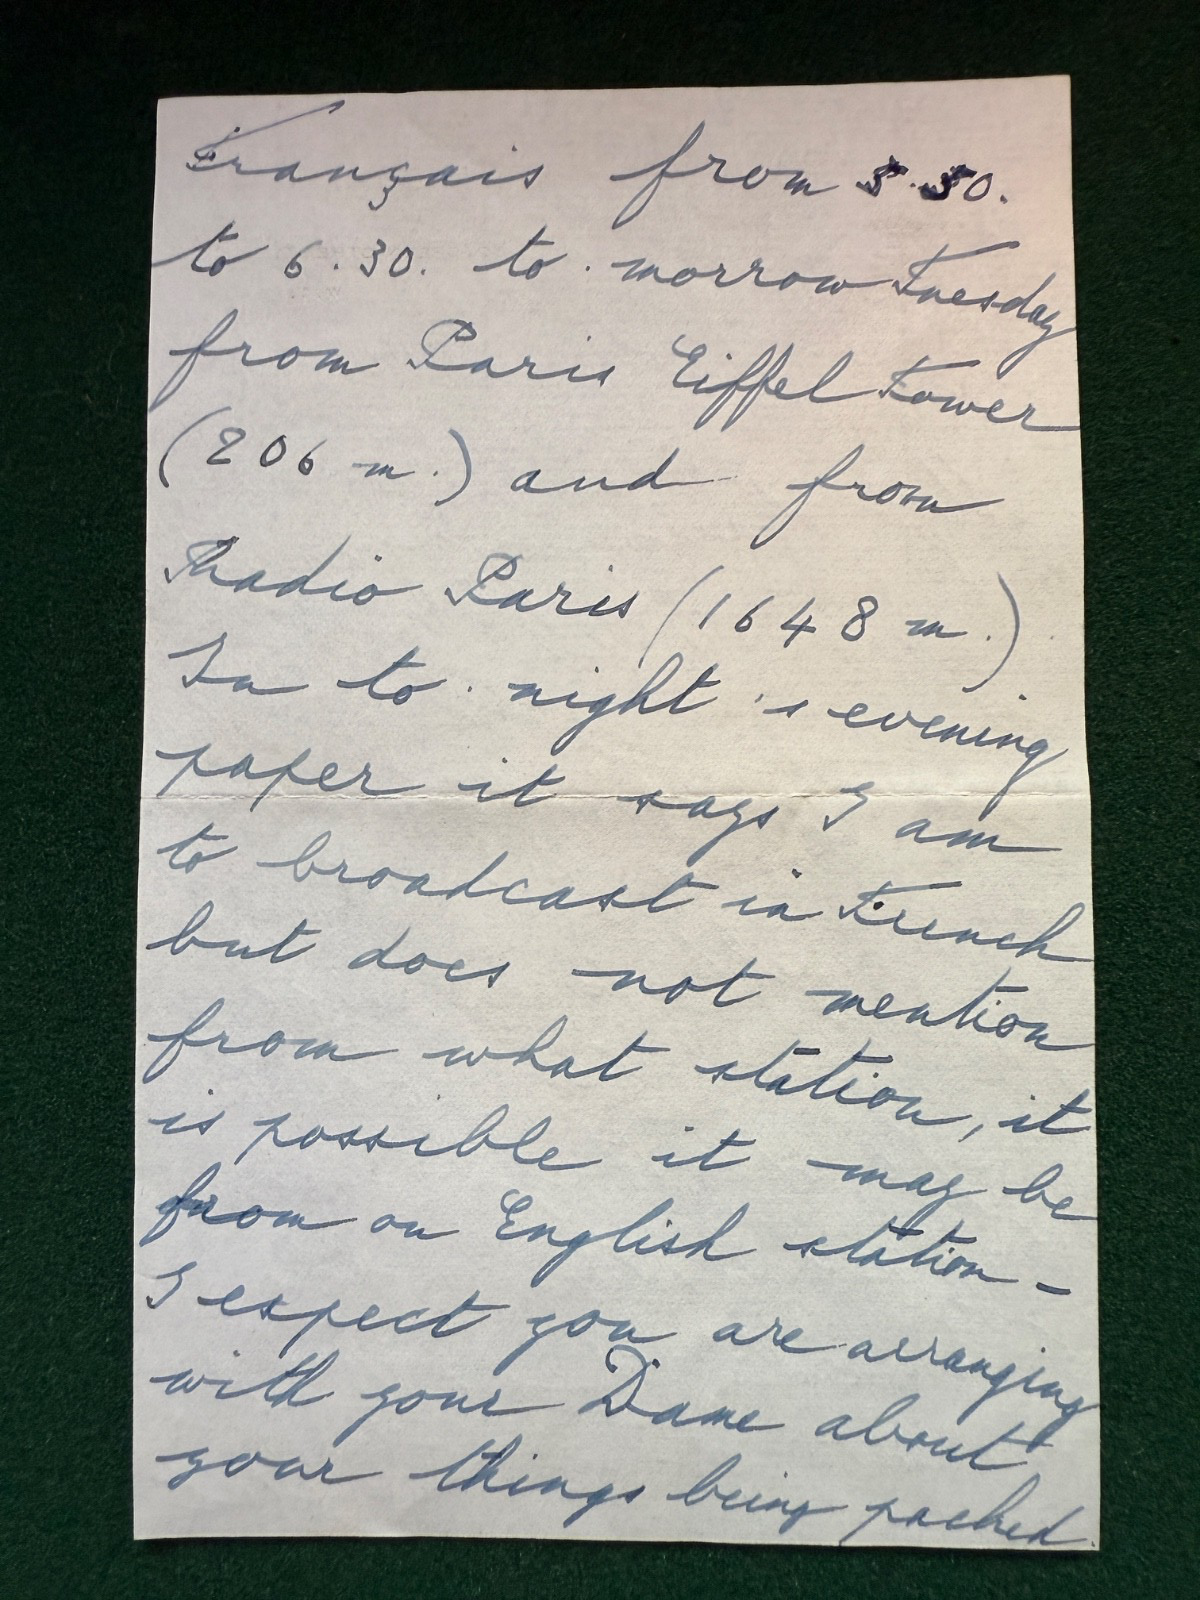 Français from 5.50.
to 6.30. to.morrow Tuesday
from Paris Eiffel Tower
(206 m.) and from
Radio Paris (1648 m.)
In to.night's evening
paper it says I am
to broadcast in French
but does not mention
from what station, it
is possible it may be
from an English station -
I expect you are arranging
with your Dame about
your things being packed.